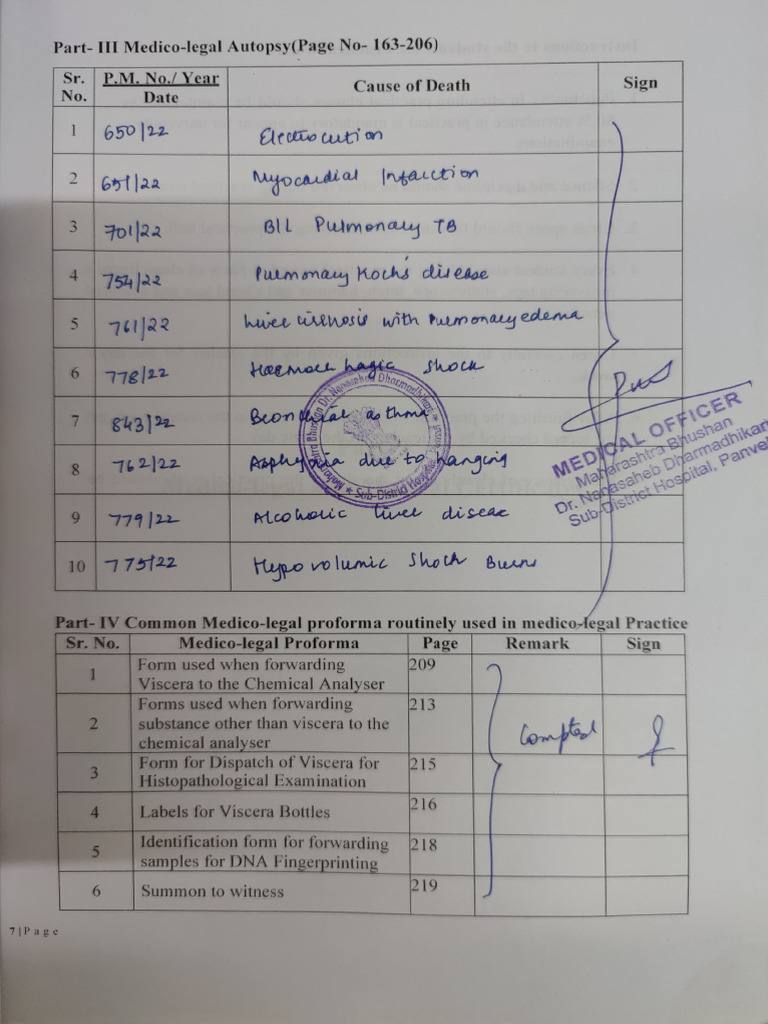 Part- III Medico-legal Autopsy(Page No- 163-206)
Sr. No. P.M. No./ Year Date Cause of Death Sign
1 650/22 Electrocution
2 651/22 Myocardial Infarction
3 701/22 B/L Pulmonary TB
4 754/22 Pulmonary Koch's disease
5 761/22 Liver cirrhosis with Pulmonary edema
6 778/22 Haemorrhagic shock
7 843/22 Bronchial asthma
8 762/22 Asphyxia due to hanging
9 779/22 Alcoholic liver disease
10 775/22 Hypovolumic Shock Burns
Sub-District Hospital
MEDICAL OFFICER
Maharashtra Bhushan
Dr. Nanasaheb Dharmadhikari
Sub-District Hospital, Panvel
Part- IV Common Medico-legal proforma routinely used in medico-legal Practice
Sr. No. Medico-legal Proforma Page Remark Sign
1 Form used when forwarding 209
Viscera to the Chemical Analyser
Forms used when forwarding 213
2 substance other than viscera to the
chemical analyser
3 Form for Dispatch of Viscera for 215
Histopathological Examination
4 Labels for Viscera Bottles 216
5 Identification form for forwarding 218
samples for DNA Fingerprinting
6 Summon to witness 219
7 | P a g e